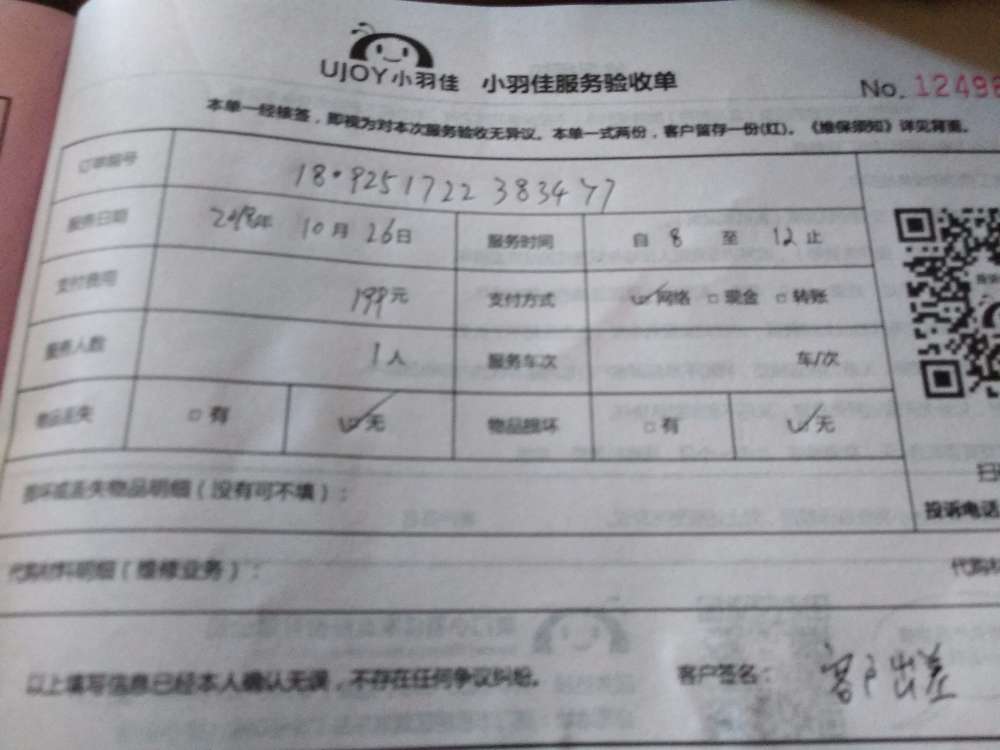 UJOY小羽佳 小羽佳服务验收单 No. 12498
本单一经核签，即视为对本次服务验收无异议。本单一式两份，客户留存一份(红)。《维保须知》详见背面。
订单编号 18092517223834
服务日期 2018年 10月 26日 服务时间 自 8 至 12 止
支付费用 199元 支付方式 网络 □现金 □转账
服务人数 1人 服务车次 车/次
物品丢失 □有 无 物品损坏 □有 无
损坏或丢失物品明细（没有可不填）：
投诉电话
代购材料明细（维修业务）： 代购
以上填写信息已经本人确认无误，不存在任何争议纠纷。 客户签名： 客户出差